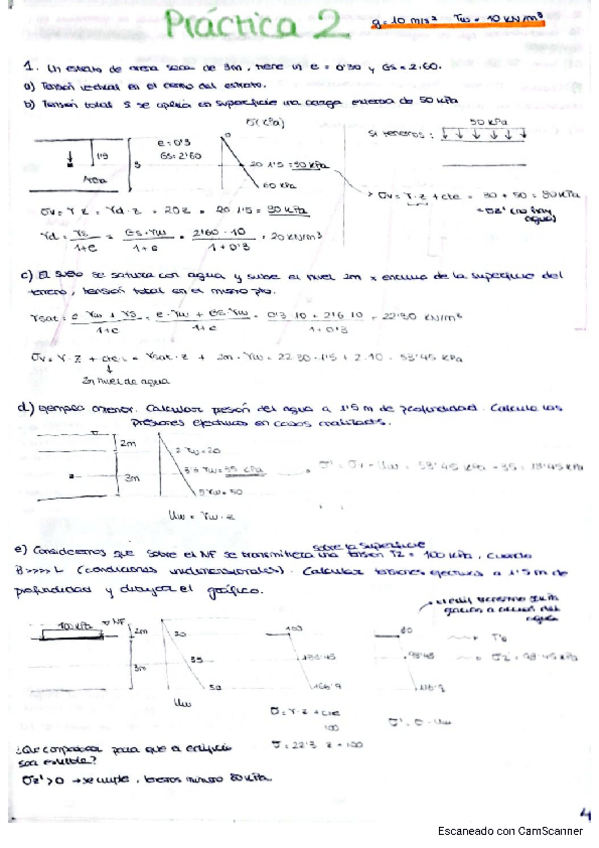 Práctica 2 g = 10 m/s² γw = 10 KN/m³
1. Un estrato de arena seca de 3m, tiene un e = 0'30 y Gs = 2'60.
a) Tensión vertical en el centro del estrato.
b) Tensión total si se aplica en superficie una carga externa de 50 kPa
σ(kPa)
50 kPa
si tenemos:
e = 0'3
Gs = 2'60
1'5
3
Arena
0
20 · 1'5 = 30 kPa
60 kPa
σv = γ · z + cte = 30 + 50 = 80 kPa
= σz' (no hay agua)
σv = γ · z = γd · z = 20z = 20 · 1'5 = 30 kPa
γd = γs / 1+e = Gs · γw / 1+e = 2'60 · 10 / 1+0'3 = 20 KN/m³
c) El suelo se satura con agua y sube el nivel 2m x encima de la superficie del
terreno, tensión total en el mismo pto.
γsat = e γw + γs / 1+e = e · γw + Gs · γw / 1+e = 0'3 · 10 + 2'6 · 10 / 1+0'3 = 22'30 KN/m³
σv = γ · z + cte = γsat · z + 2m · γw = 22'30 · 1'5 + 2 · 10 = 53'45 kPa
2m nivel de agua
d) Ejemplo anterior. Calcular presión del agua a 1'5 m de profundidad. Calcula las
presiones efectivas en casos analizados.
2m
3m
2 γw = 20
3'5 γw = 35 kPa
5 γw = 50
σ' = σv - Uw = 53'45 kPa - 35 = 18'45 kPa
Uw = γw · z
e) Consideremos que sobre el NF se transmitiera sobre la superficie una tensión TZ = 100 kPa, cuando
B >>>> L (condiciones unidimensionales). Calcular tensiones efectivas a 1'5 m de
profundidad y dibujar el gráfico.
el edif
agua
100 kPa
NF
2m
3m
20
35
50
Uw
100
133'45
166'9
σ = γ · z + cte
100
σ = 22'3 z + 100
80
98'45
116'9
σz' = 98'45 kPa
σ' = σ - Uw
¿Qué comprobar para que el edificio
sea estable?
σz' > 0 → se cumple, tenemos mínimo 80 kPa.
4
Escaneado con CamScanner